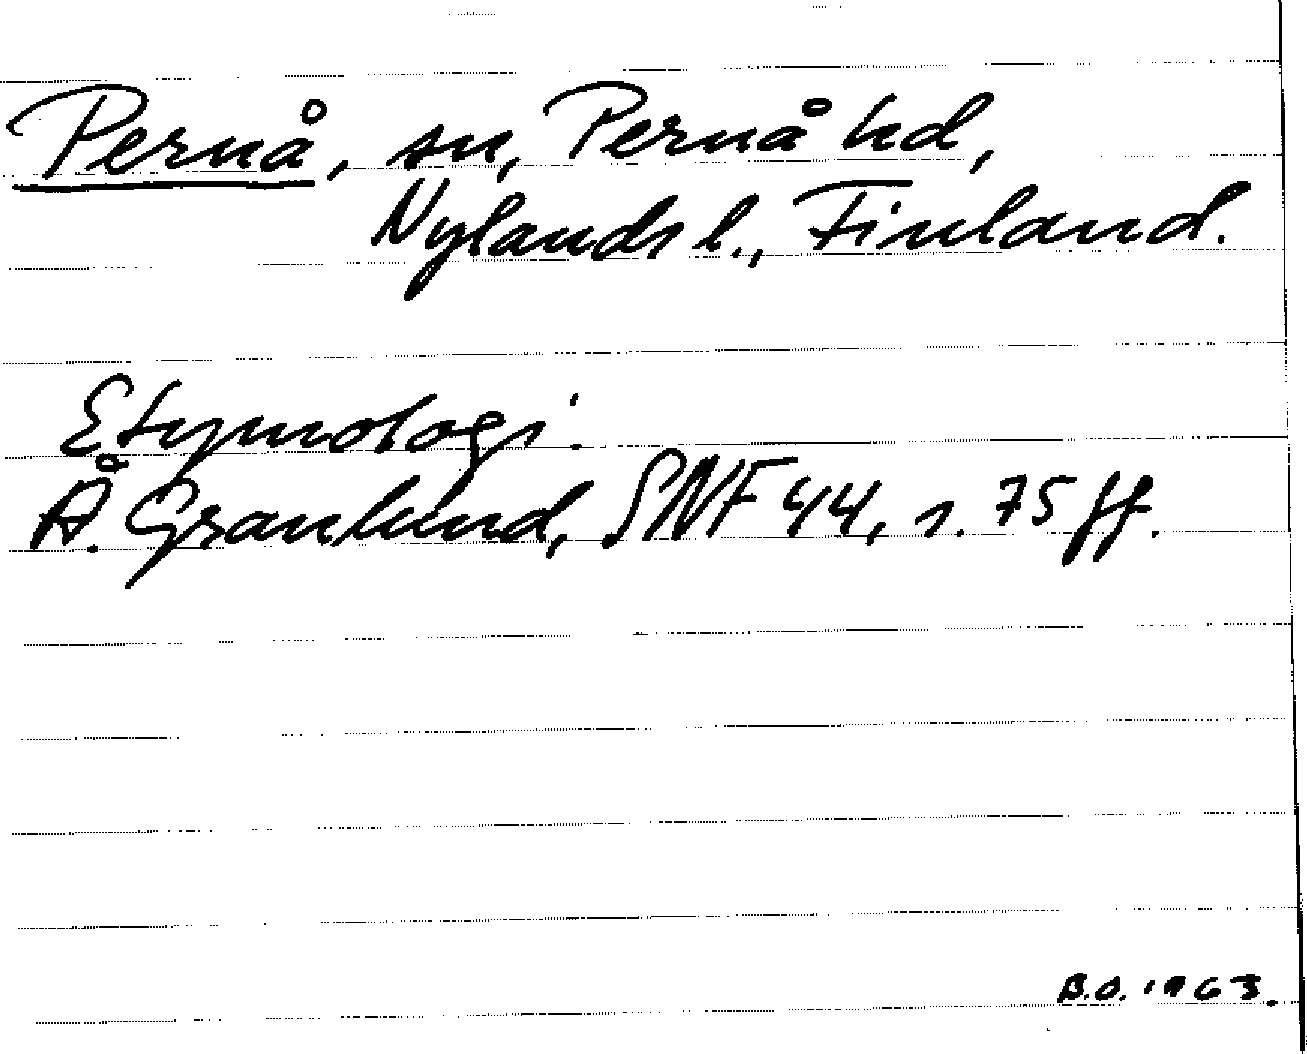 Pernå, sn, Pernå hd,
Nylands l., Finland.
Etymologi:
Å. Granlund, SNF 44, s. 75 ff.
B.O. 1963.